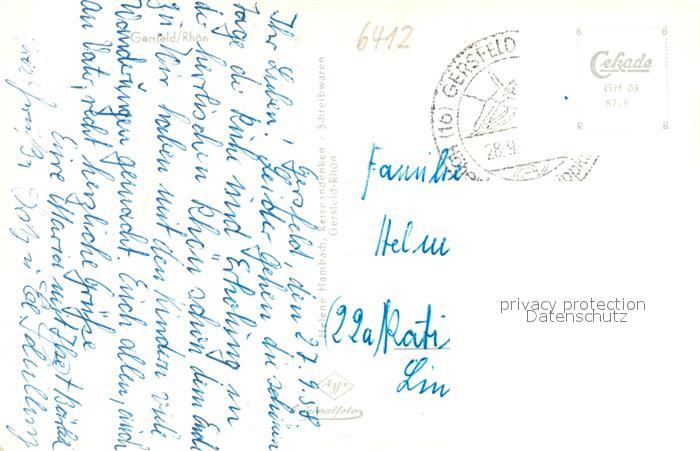 Gersfeld/Rhön
6412
(16) GERSFELD
28.9
Cekade
Grf 03
57/5
B B
R B
Gersfeld, den 27.9.58
Ihr Lieben! Leider gehen die schönen
Tage der Ruhe und Erholung in
der herrlichen Rhön schon dem Ende
zu. Wir haben mit den Kindern viele
Wanderungen gemacht. Euch allen, auch
an Vater, recht herzliche Grüße
Eure Maria mit
Helene Hambach, Reiseandenken - Schreibwaren
Gersfeld-Rhön
Familie
Helm
(22a) Rati
Lin
Originalfoto
privacy protection
Datenschutz